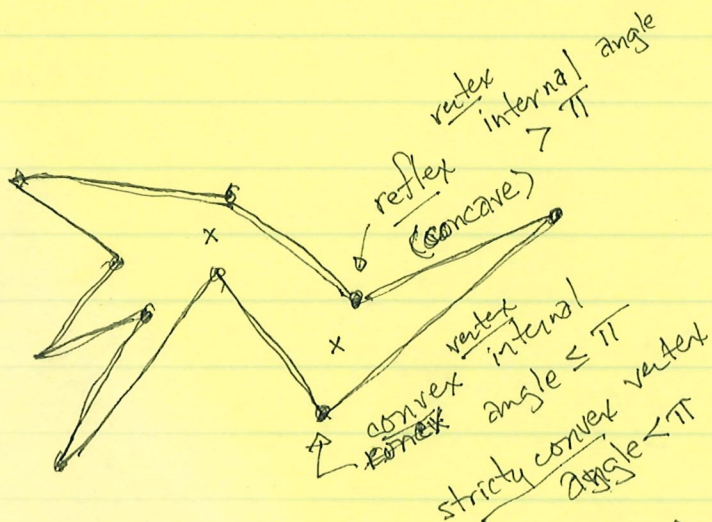 reflex vertex
(concave)
internal angle
> π
convex vertex internal
angle ≤ π
stricty convex vertex
angle < π